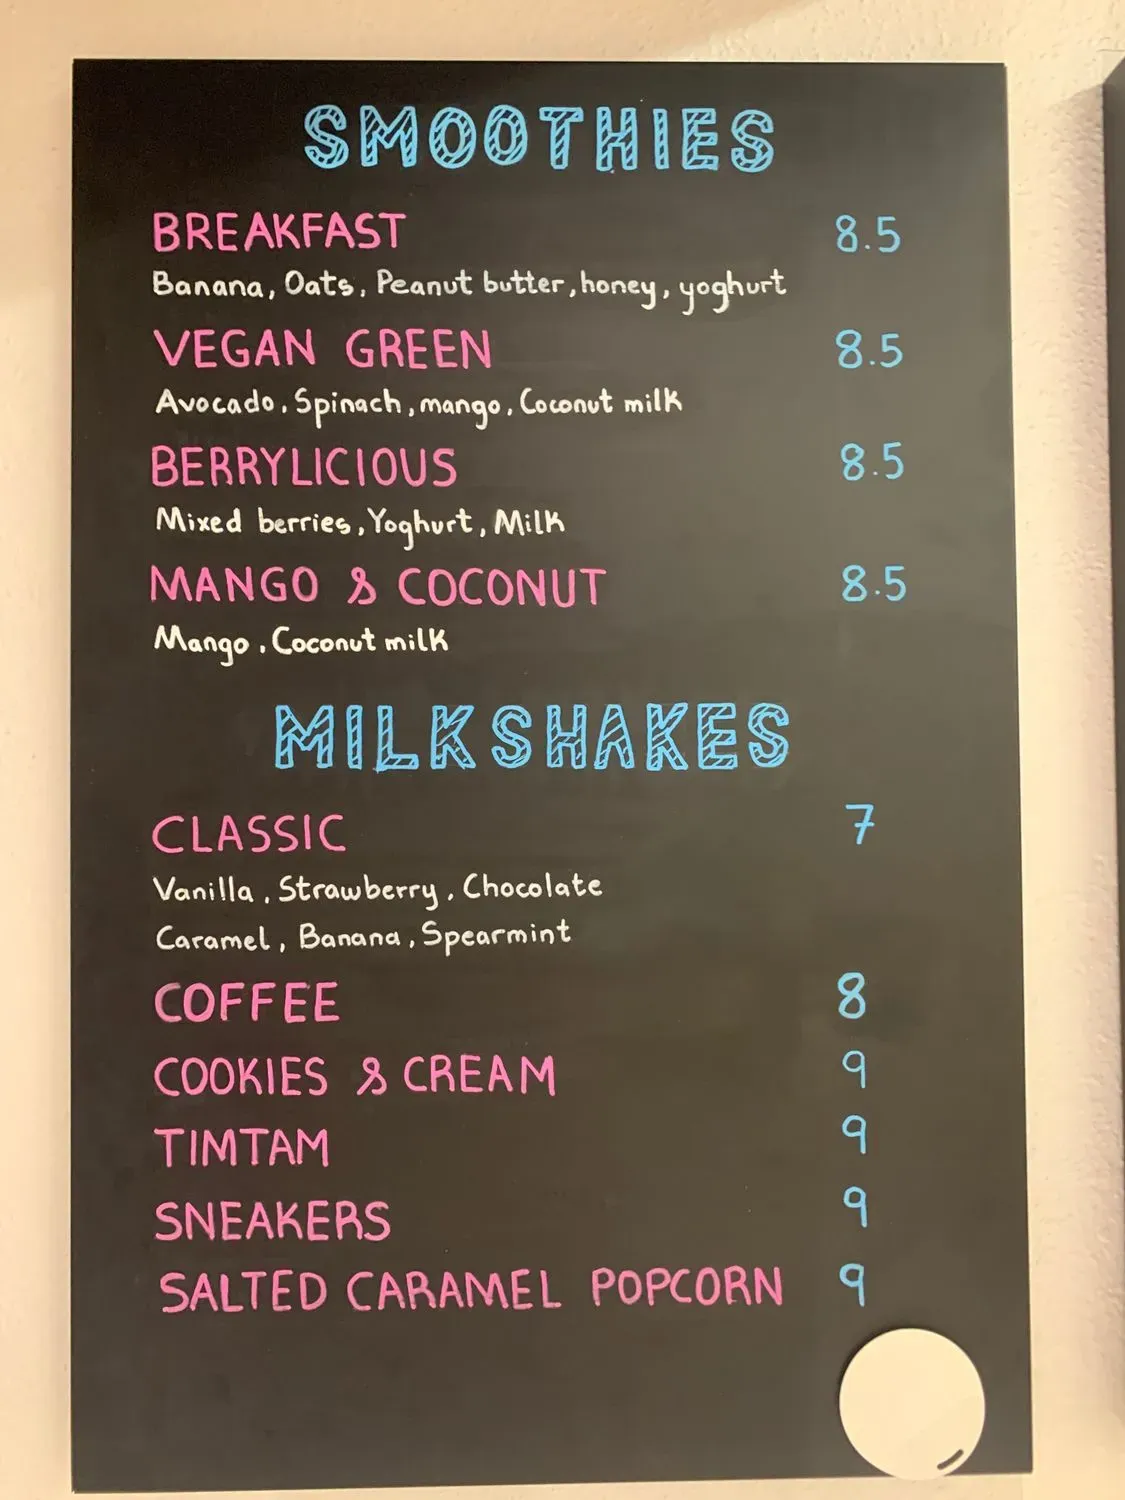 SMOOTHIES
BREAKFAST 8.5
Banana, Oats, Peanut butter, honey, yoghurt
VEGAN GREEN 8.5
Avocado, Spinach, mango, Coconut milk
BERRYLICIOUS 8.5
Mixed berries, Yoghurt, Milk
MANGO & COCONUT 8.5
Mango, Coconut milk
MILKSHAKES
CLASSIC 7
Vanilla, Strawberry, Chocolate
Caramel, Banana, Spearmint
COFFEE 8
COOKIES & CREAM 9
TIMTAM 9
SNEAKERS 9
SALTED CARAMEL POPCORN 9